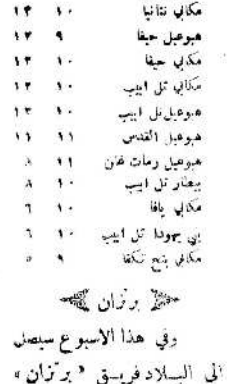 مكابي نتانيا ١٠ ١٤
هبوعيل حيفا ٩ ١٣
مكابي حيفا ١٠ ١٣
مكابي تل ابيب ١٠ ١٣
هبوعيل تل ابيب ١٠ ١٣
هبوعيل القدس ١١ ١١
هبوعيل رمات غان ١١ ٨
بيطار تل ابيب ١٠ ٨
مكابي يافا ١٠ ٦
بني يهودا تل ابيب ١٠ ٦
مكابي بتح تكفا ٩ ٥
برتزان
وفي هذا الاسبوع سيصل
الى البلاد فريق « برتزان »